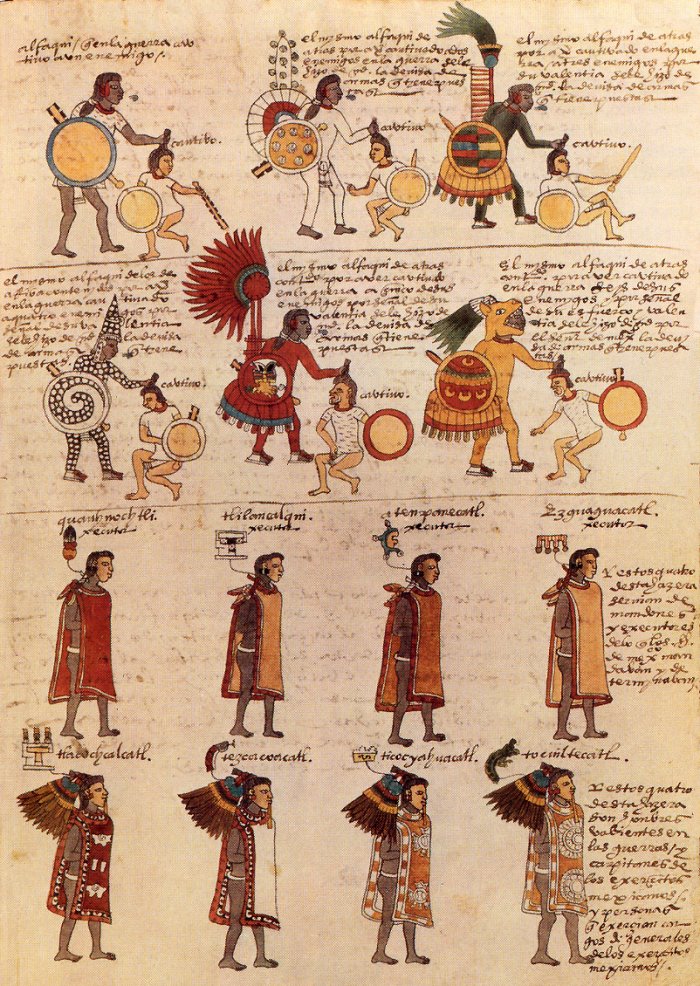 alfaqui / q en la guerra cau
tivo a un enemigo /.
cautivo.
el mismo alfaqui de
atras por a q cautivado, dos
enemigos en la guerra sele
hizo la devisa de
armas q tiene pue
stas
cautivo
el mismo alfaqui de atras
por a q cautivado en la gue
rra / a tres enemigos por
su valentia sele hizo de
la devisa de armas
q tiene puestas
cautivo.
el mismo alfaqui de los de
atras
en la guerra cautivado
a quatro enemigos
valentia
sele hizo de la devisa
de armas q tiene
puestas
cautivo.
el mismo alfaqui de atras
por aver cautivado
en la guerra a cinco ene
migos por señal de su
valentia sele hizo de
la devisa de
armas q tiene
puestas
cautivo.
El mismo alfaqui de atras
por aver cautivado
en la guerra seis
enemigos / y por señal
de su esfuerço / y valen
tia sele hizo por
el señor de mex la devi
sa de armas q tiene pues
tas /
cautivo
quauhnochtli.
xecutor
tlilancalqui.
xecutor
atenpanecatl.
xecutor
Ezguaguacatl.
xecutor
Y estos quatro
desta hazera
servian de
mandones
y executores
de lo q los
de mexco man
davan y de
terminavan
tlacochcalcatl.
tezcacoacatl.
ticocyahuacatl.
tocuiltecatl.
Y estos quatro
desta hazera
son honbres
valientes en
las guerras / y
capitanes de
los exercitos
mexicanos /
y personas
q exercian car
gos de generales
de los exercitos
mexicanos /.